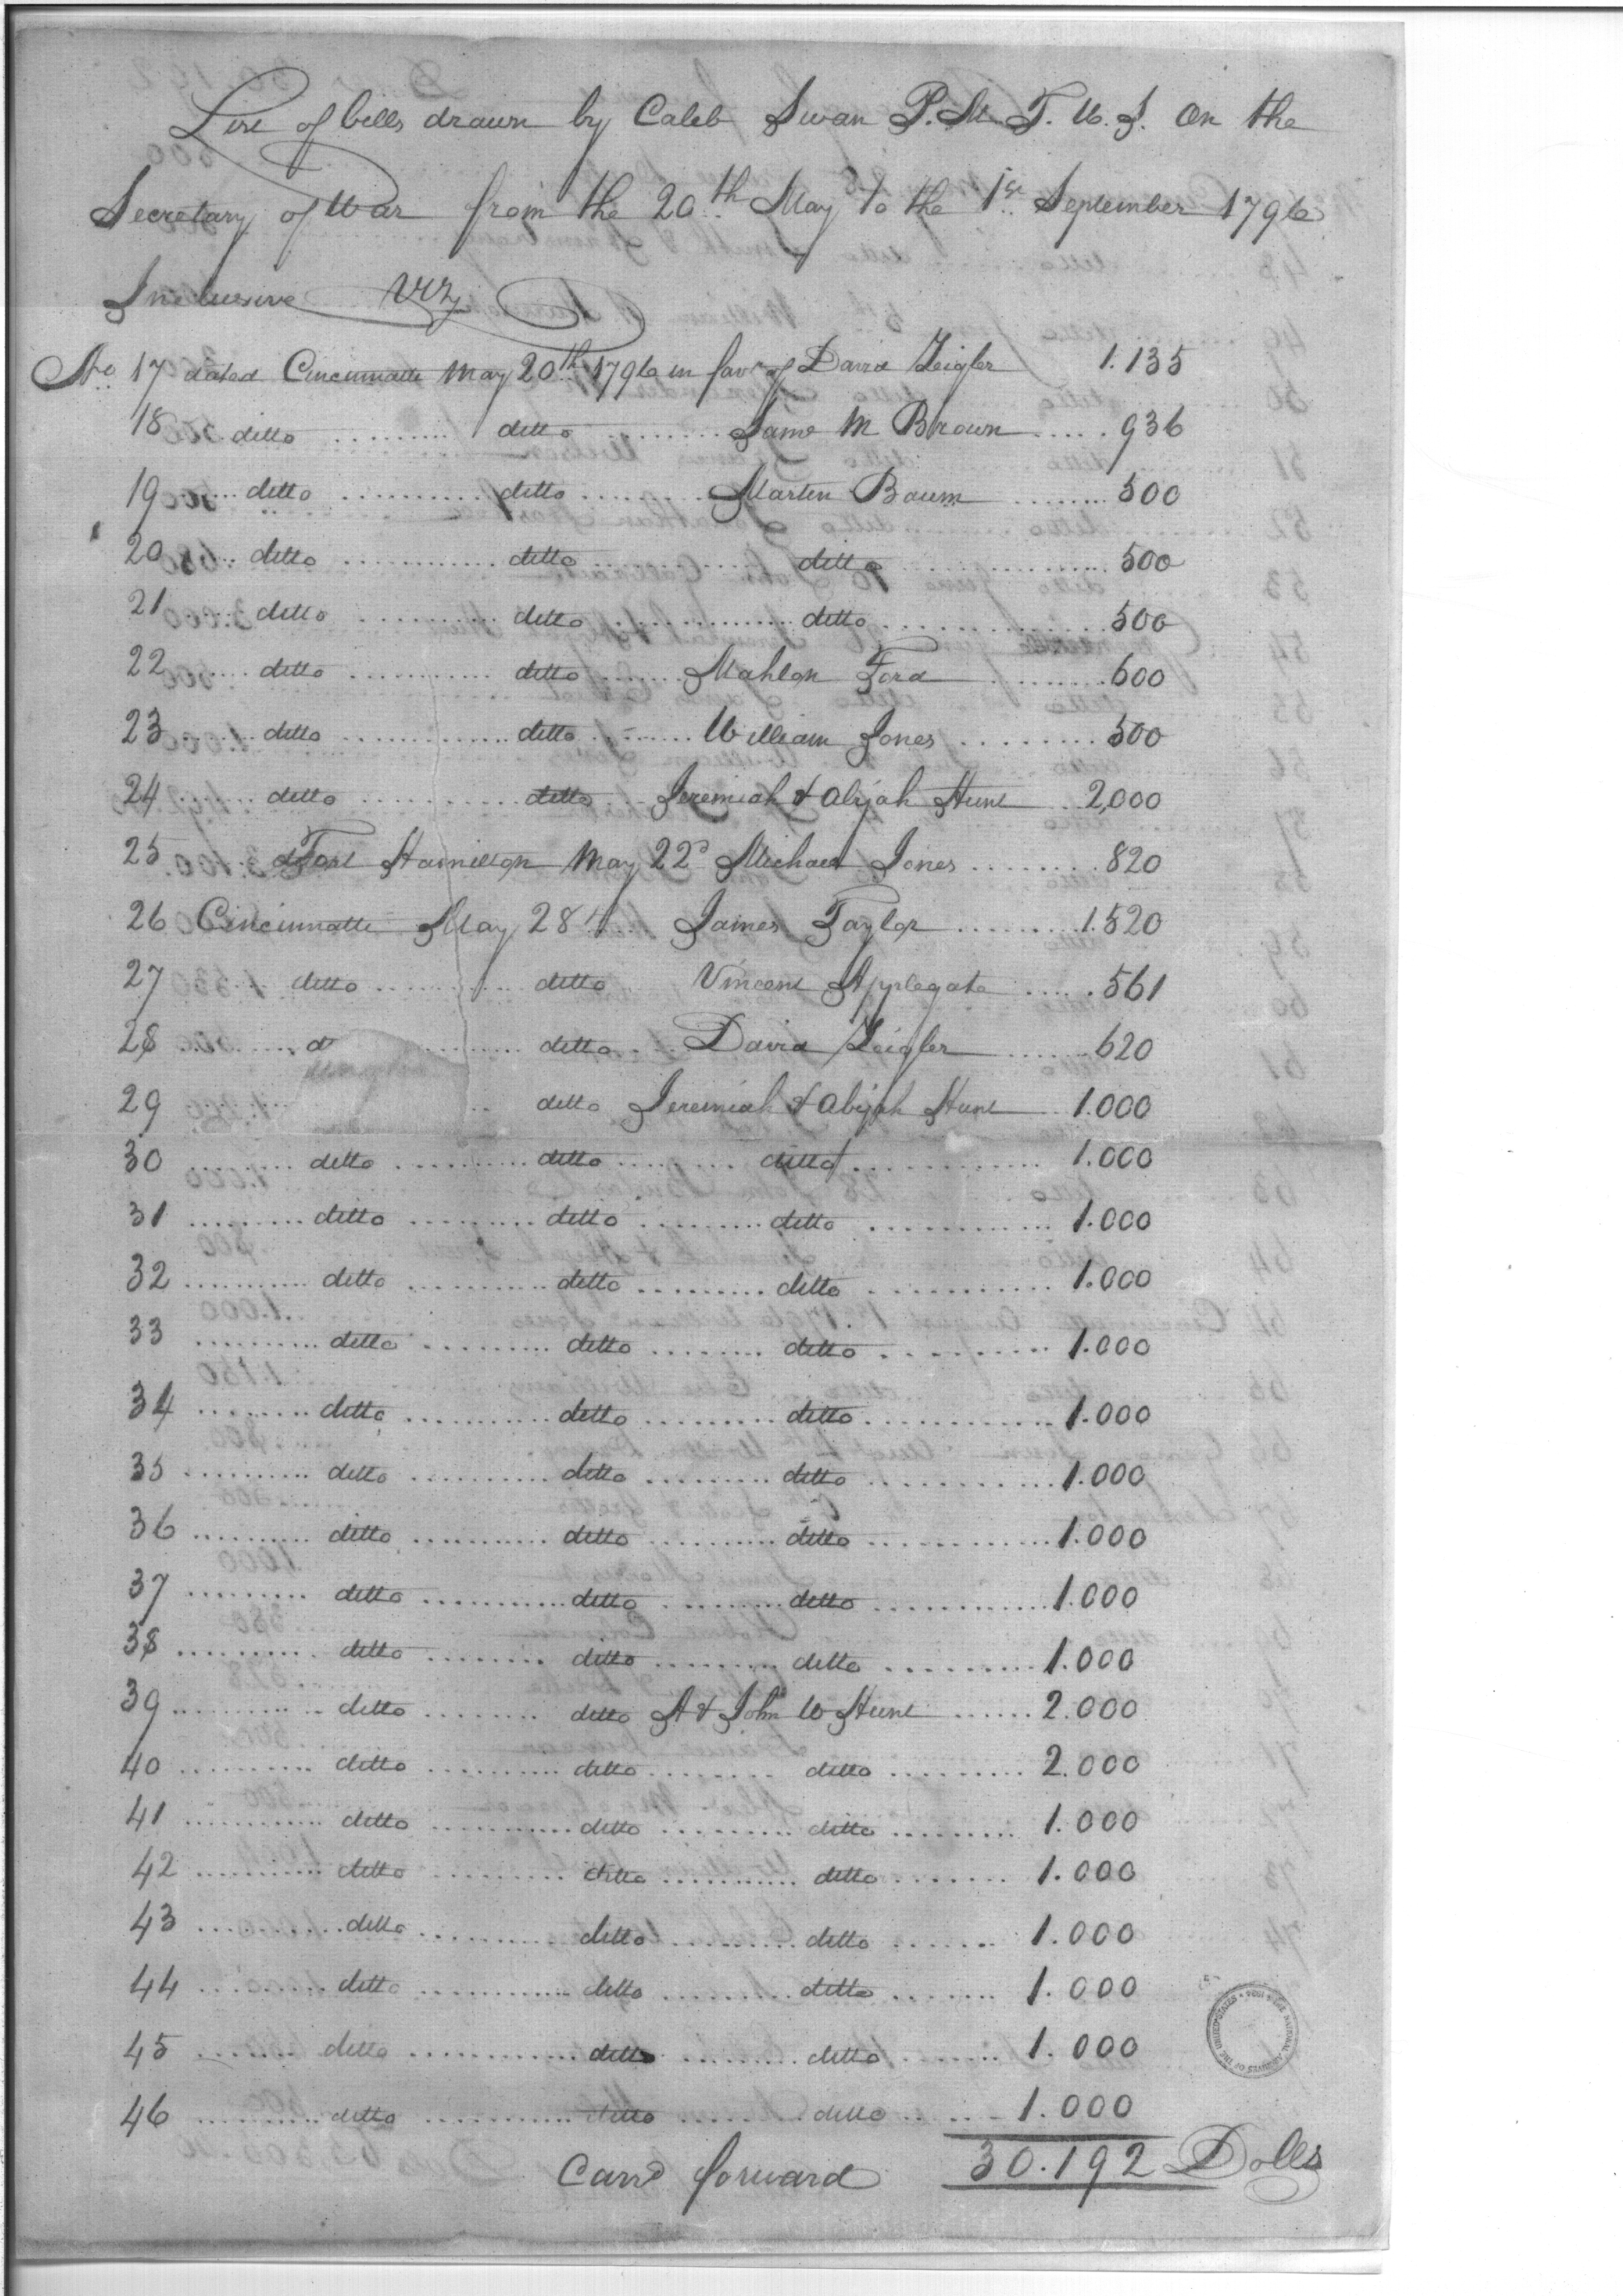 List of bills drawn by Caleb Swan P.M. T. U. S. on the
Secretary of War from the 20th May to the 1st September 1796
Inclusive Viz
No 17 dated Cincinnatti May 20th 1796 in favr of David Zeigler 1.135
18 ditto ditto Jame M Brown 936
19 ditto ditto Martin Baum 500
20 ditto ditto ditto 500
21 ditto ditto ditto 500
22 ditto ditto Mahlon Ford 600
23 ditto ditto William Jones 500
24 ditto ditto Jeremiah & Abijah Hunt 2,000
25 Fort Hamilton May 22d Michael Jones 820
26 Cincinnatti May 28th James Taylor 1.520
27 ditto ditto Vincent Applegate 561
28 d ditto David Zeigler 620
29 ditto Jeremiah & Abijah Hunt 1.000
30 ditto ditto ditto 1.000
31 ditto ditto ditto 1.000
32 ditto ditto ditto 1.000
33 ditto ditto ditto 1.000
34 ditto ditto ditto 1.000
35 ditto ditto ditto 1.000
36 ditto ditto ditto 1.000
37 ditto ditto ditto 1.000
38 ditto ditto ditto 1.000
39 ditto ditto A & John W Hunt 2.000
40 ditto ditto ditto 2.000
41 ditto ditto ditto 1.000
42 ditto ditto ditto 1.000
43 ditto ditto ditto 1.000
44 ditto ditto ditto 1.000
45 ditto ditto ditto 1.000
46 ditto ditto ditto 1.000
Carrd forward 30.192 Dolls
THE NATIONAL ARCHIVES OF THE UNITED STATES 1934